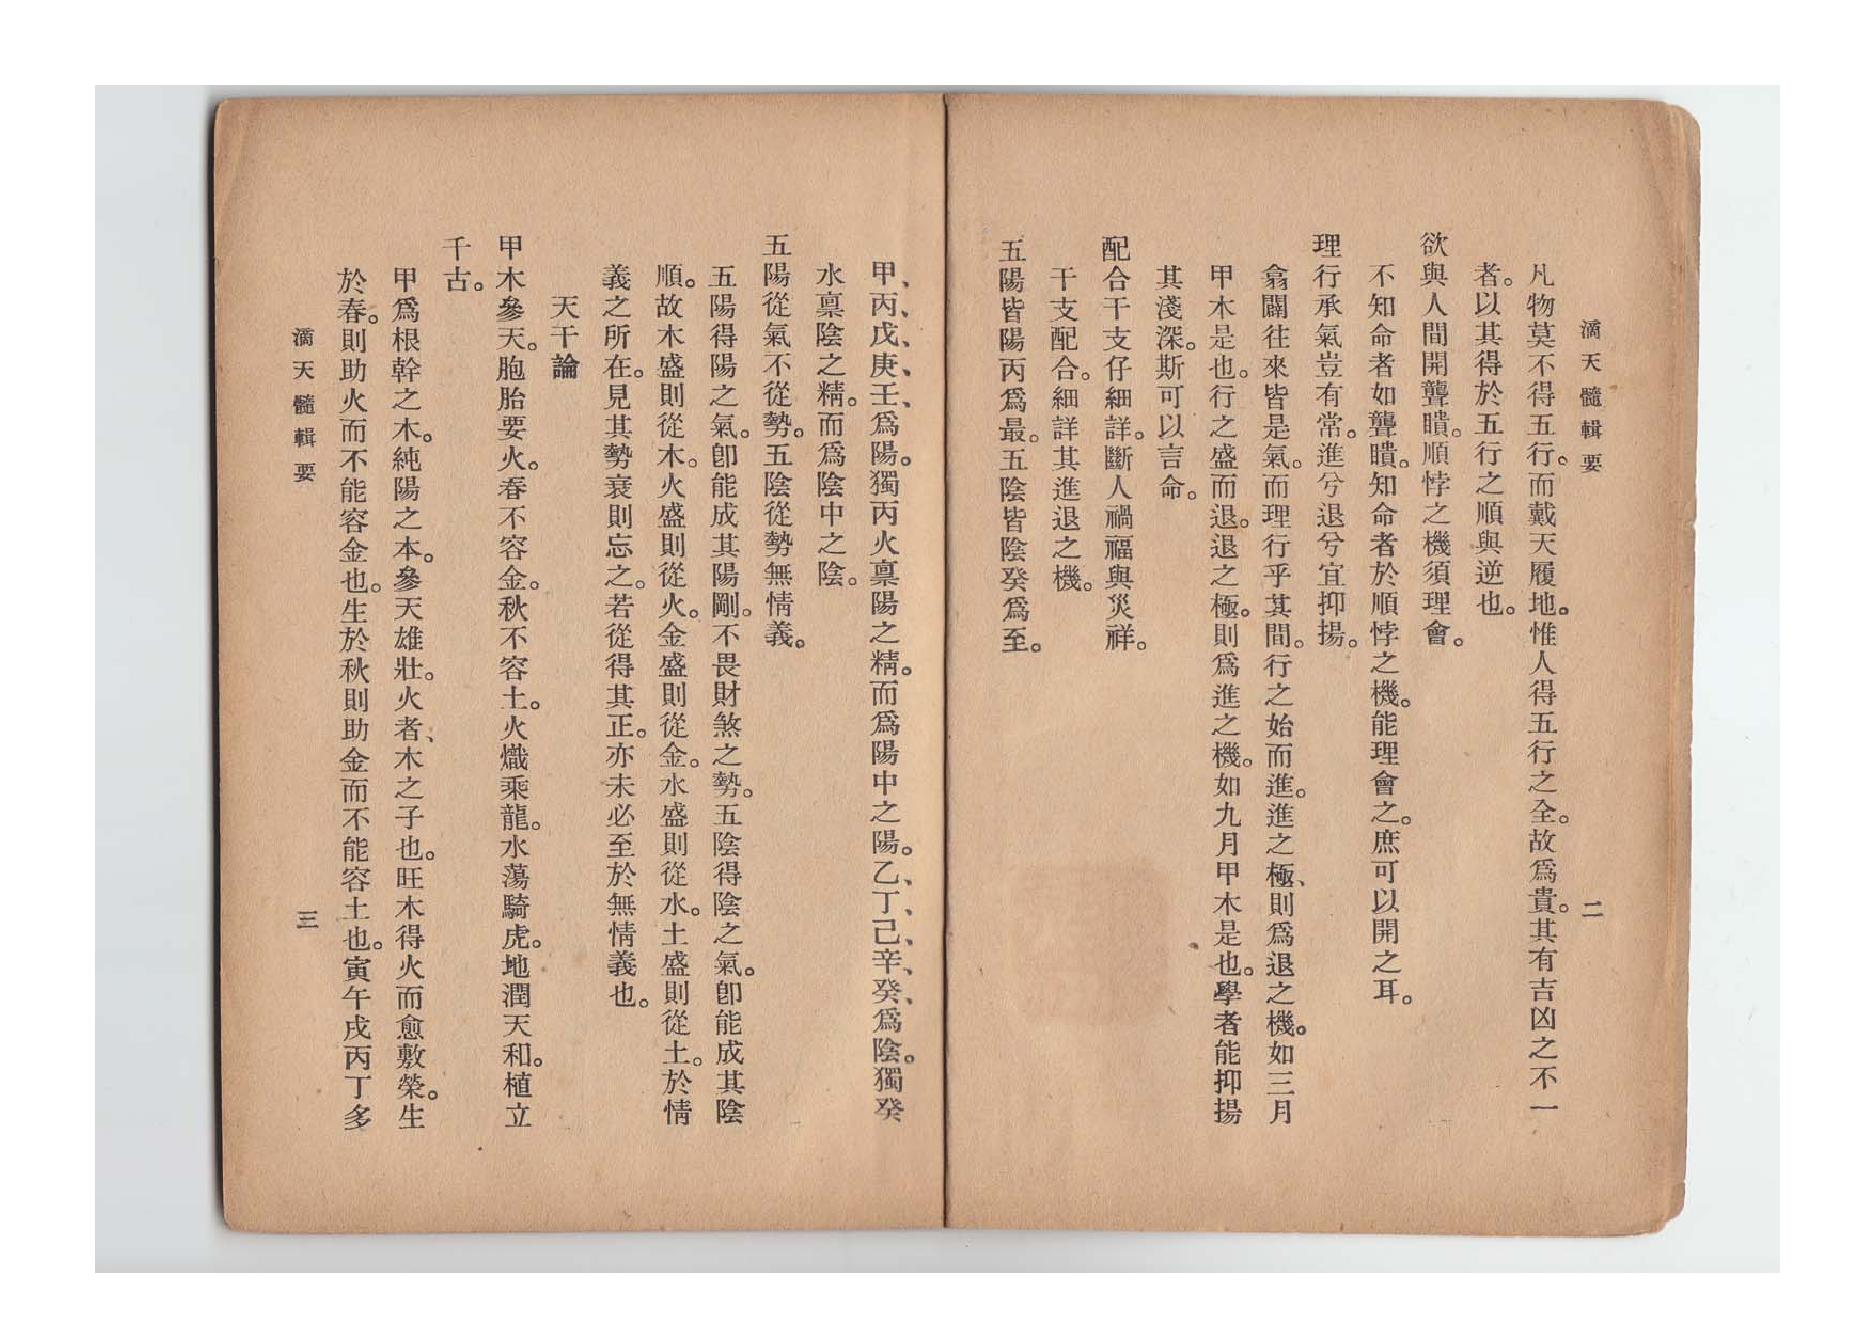 滴天髓輯要
二
凡物莫不得五行。而戴天履地。惟人得五行之全。故爲貴。其有吉凶之不一
者。以其得於五行之順與逆也。
欲與人間開聾聵。順悖之機須理會。
不知命者如聾聵。知命者於順悖之機。能理會之。庶可以開之耳。
理行承氣豈有常。進兮退兮宜抑揚。
翕闢往來皆是氣。而理行乎其間。行之始而進。進之極、則爲退之機。如三月
甲木是也。行之盛而退。退之極。則爲進之機。如九月甲木是也。學者能抑揚
其淺深。斯可以言命。
配合干支仔細詳。斷人禍福與災祥。
干支配合。細詳其進退之機。
五陽皆陽丙爲最。五陰皆陰癸爲至。
甲、丙、戊、庚、壬、爲陽。獨丙火稟陽之精。而爲陽中之陽。乙、丁、己、辛、癸、爲陰。獨癸
水稟陰之精。而爲陰中之陰。
五陽從氣不從勢。五陰從勢無情義。
五陽得陽之氣。卽能成其陽剛。不畏財煞之勢。五陰得陰之氣。卽能成其陰
順。故木盛則從木。火盛則從火。金盛則從金。水盛則從水。土盛則從土。於情
義之所在。見其勢衰則忘之。若從得其正。亦未必至於無情義也。
天干論
甲木參天。胞胎要火。春不容金。秋不容土。火熾乘龍。水蕩騎虎。地潤天和。植立
千古。
甲爲根幹之木。純陽之本。參天雄壯。火者、木之子也。旺木得火而愈敷榮。生
於春。則助火而不能容金也。生於秋則助金而不能容土也。寅午戌丙丁多
滴天髓輯要
三